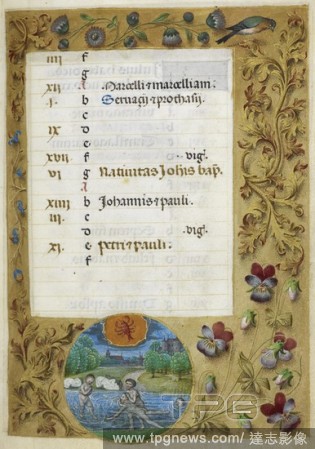 iiii f
g
xii A Marcelli ⁊ marcelliani:
i. b Geruacij ⁊ prothasij
c
ix d
e
xvii f vigꝭ.
vi g Natiuitas Johis bap.
A
xiiii b Johannis ⁊ pauli.
iii c
d vigꝭ.
xi. e Petri ⁊ pauli.
f
TPG
www.tpgnews.com/ 達志影像